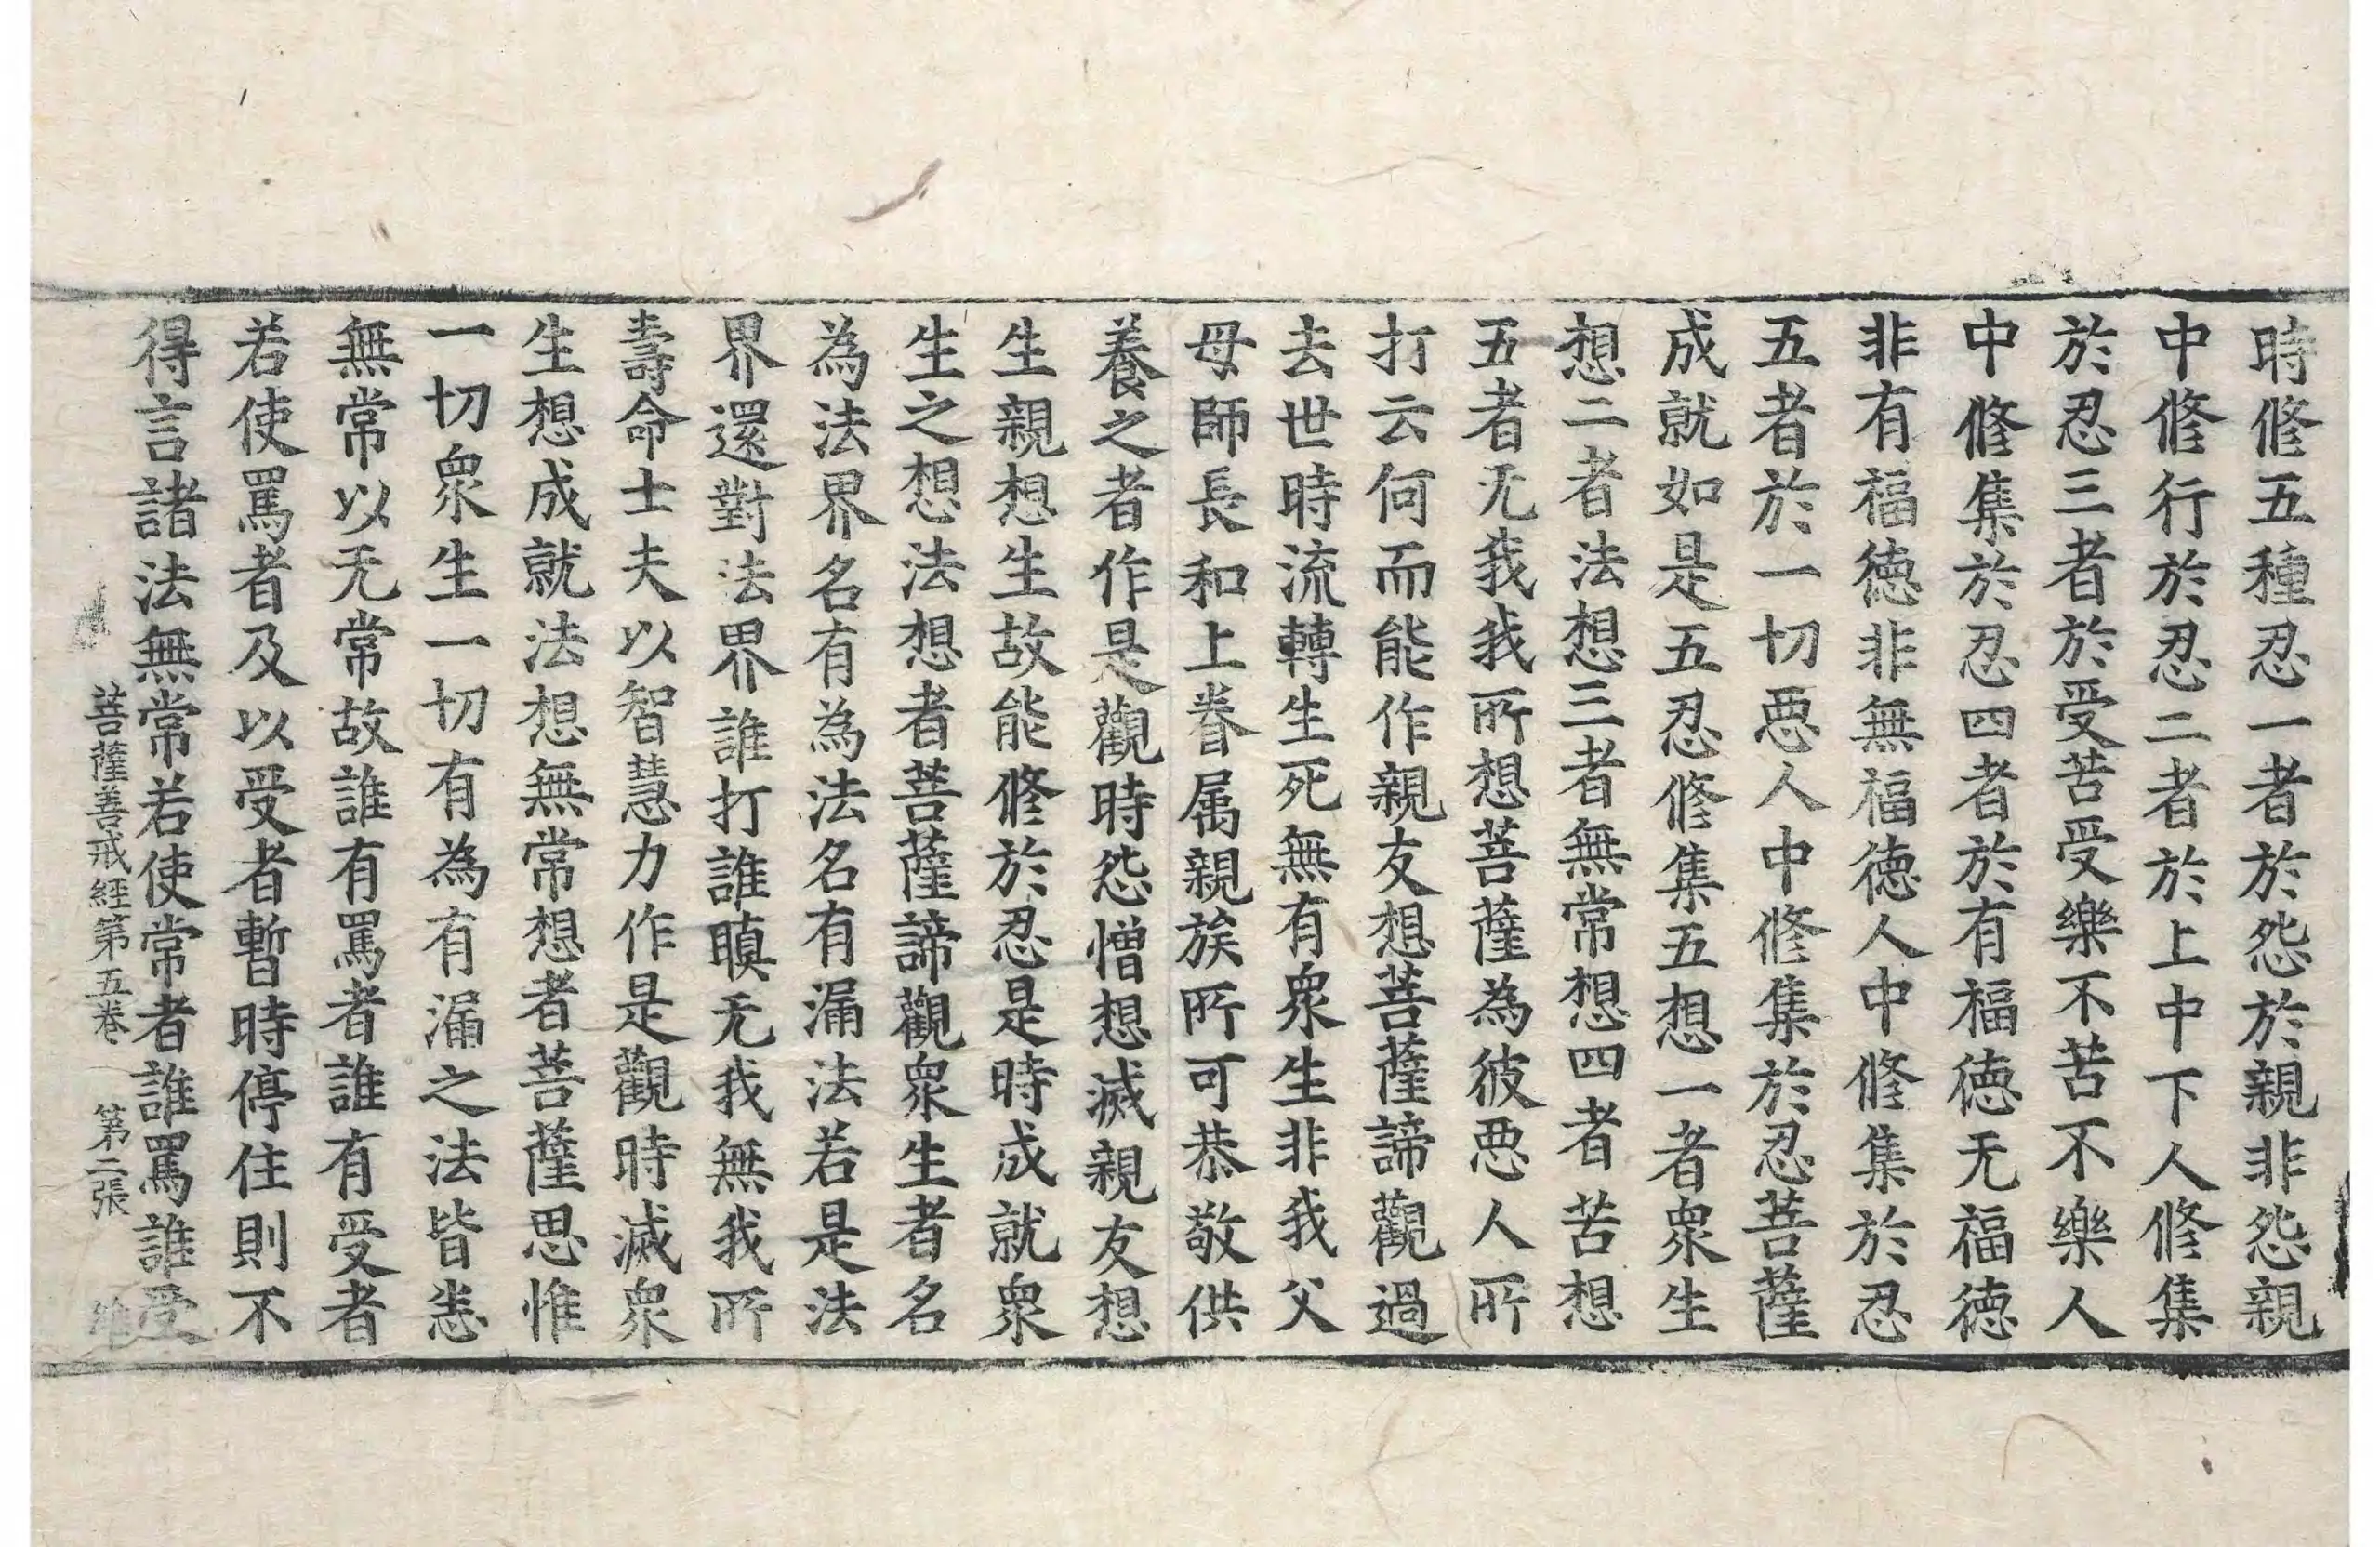 時修五種忍一者於怨於親非怨親
中修行於忍二者於上中下人修集
於忍三者於受苦受樂不苦不樂人
中修集於忍四者於有福徳无福徳
非有福徳非無福徳人中修集於忍
五者於一切惡人中修集於忍菩薩
成就如是五忍修集五想一者衆生
想二者法想三者無常想四者苦想
五者无我我所想菩薩為彼惡人所
打云何而能作親友想菩薩諦觀過
去世時流轉生死無有衆生非我父
母師長和上眷属親族所可恭敬供
養之者作是觀時怨憎想滅親友想
生親想生故能修於忍是時成就衆
生之想法想者菩薩諦觀衆生者名
為法界名有為法名有漏法若是法
界還對法界誰打誰瞋无我無我所
壽命士夫以智慧力作是觀時滅衆
生想成就法想無常想者菩薩思惟
一切衆生一切有為有漏之法皆悉
無常以无常故誰有罵者誰有受者
若使罵者及以受者暫時停住則不
得言諸法無常若使常者誰罵誰受
菩薩善戒經第五卷 第二張 維